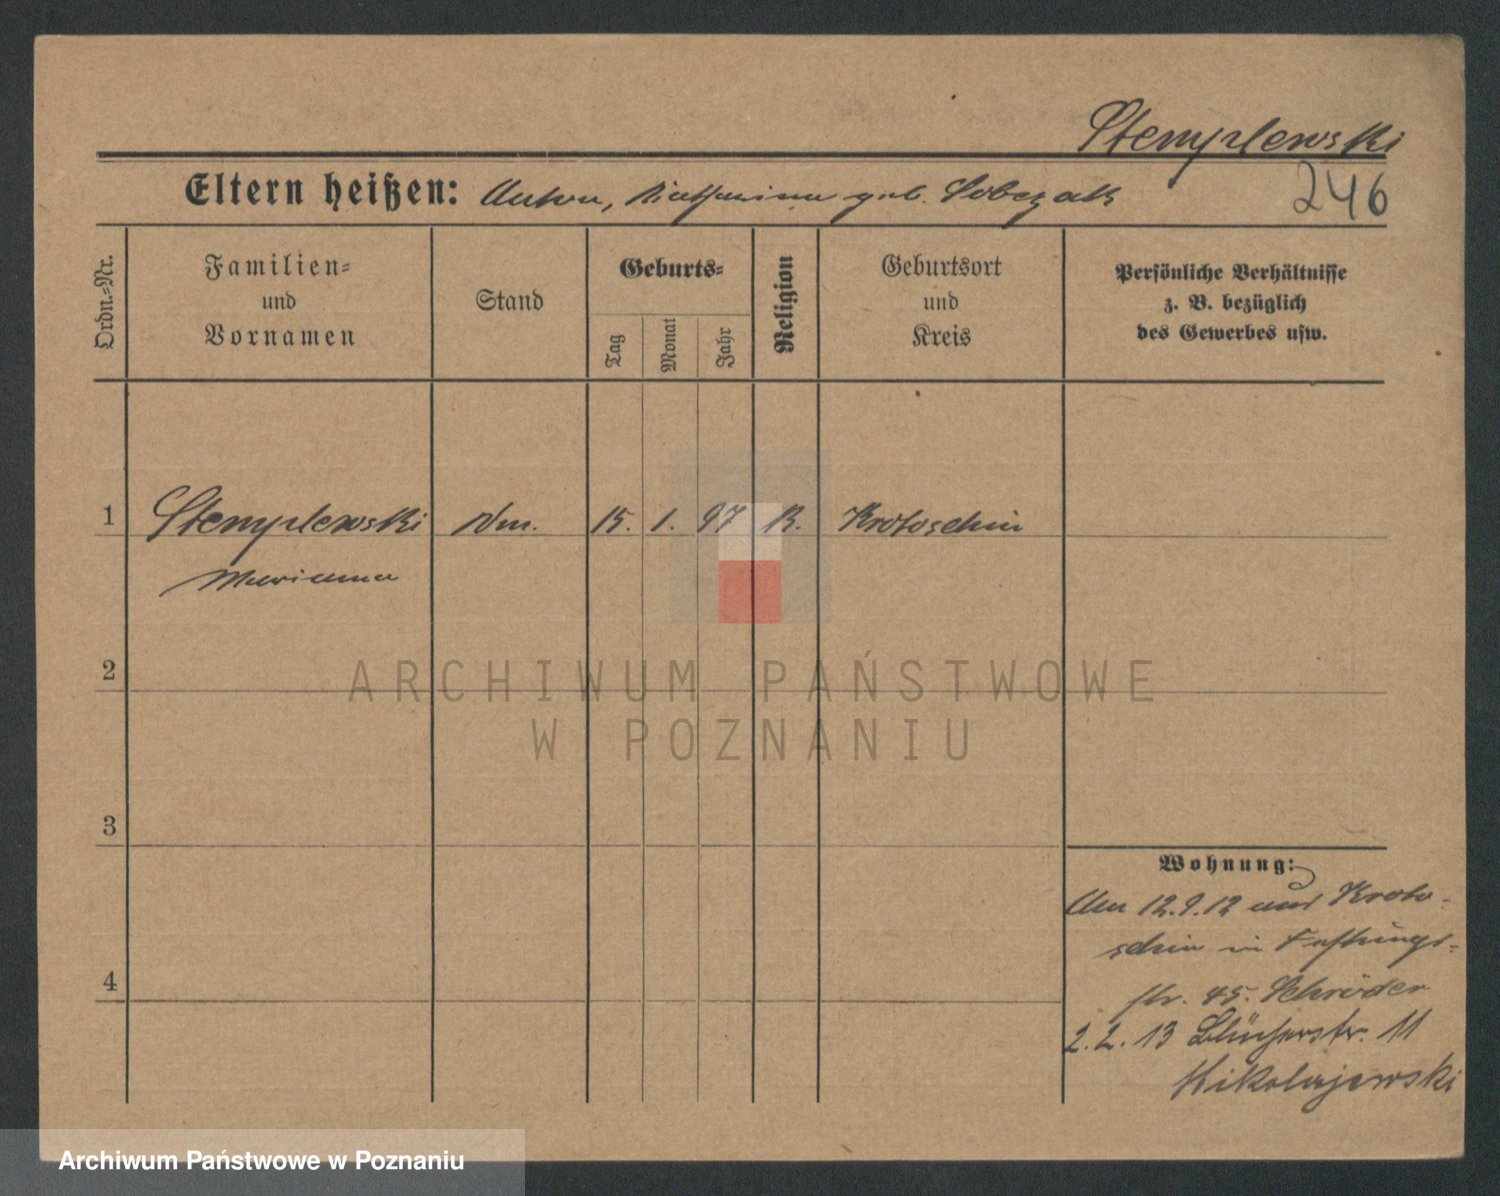 Stemplewski
246
Eltern heißen: Anton, Katharina geb. Sobczak
Ordn.-Nr.
Familien-
und
Vornamen
Stand
Geburts-
Tag
Monat
Jahr
Religion
Geburtsort
und
Kreis
Persönliche Verhältnisse
z. B. bezüglich
des Gewerbes usw.
1 Stemplewski 15. 1. 97 K. Krotoschin
Marianna
2
ARCHIWUM PAŃSTWOWE
W POZNANIU
3
Wohnung:
Am 12.9.12 aus Kroto-
schin in Festungs-
str. 45. Schröder
2.2.13 Blücherstr. 11
Mikolajewski
4
Archiwum Państwowe w Poznaniu